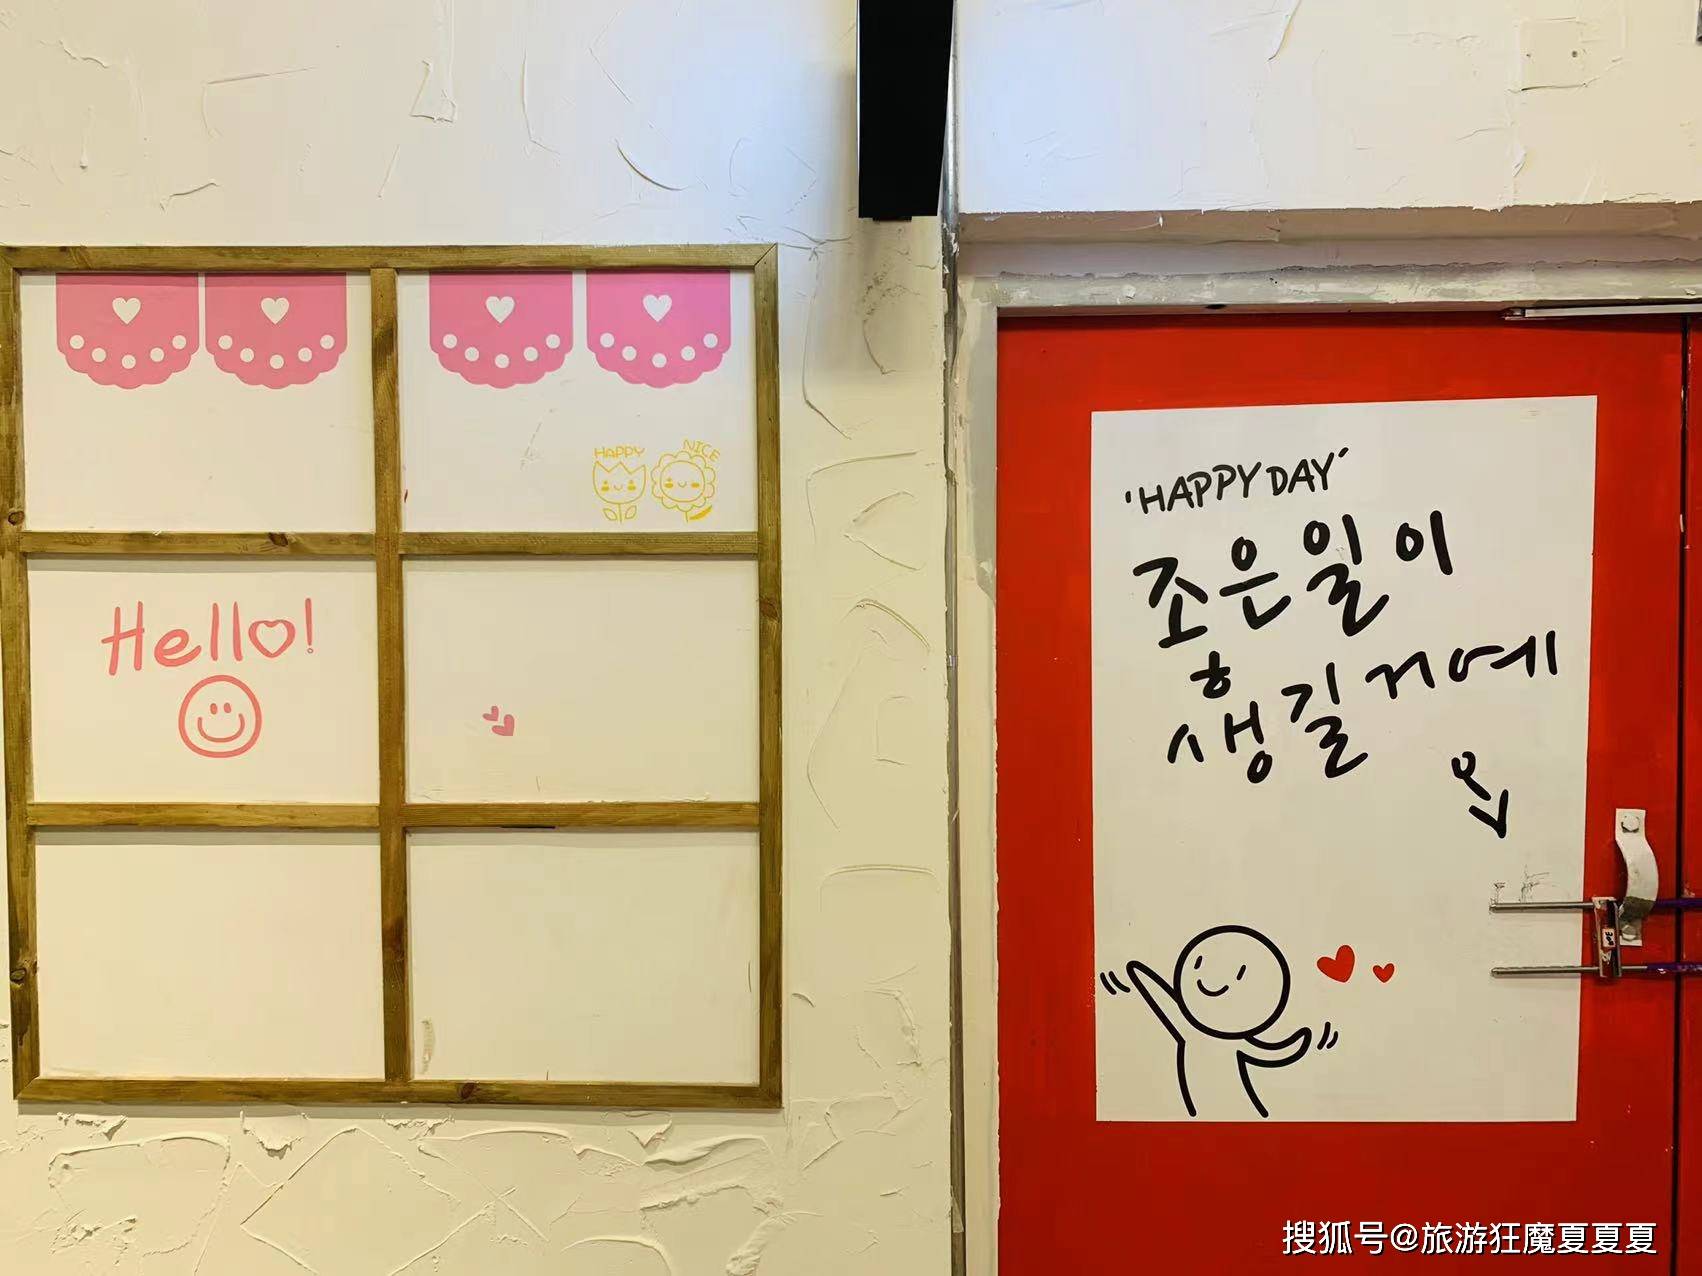 HAPPY
NICE
Hello!
'HAPPY DAY'
조은일이
ㅎ
생길거에
요
搜狐号@旅游狂魔夏夏夏